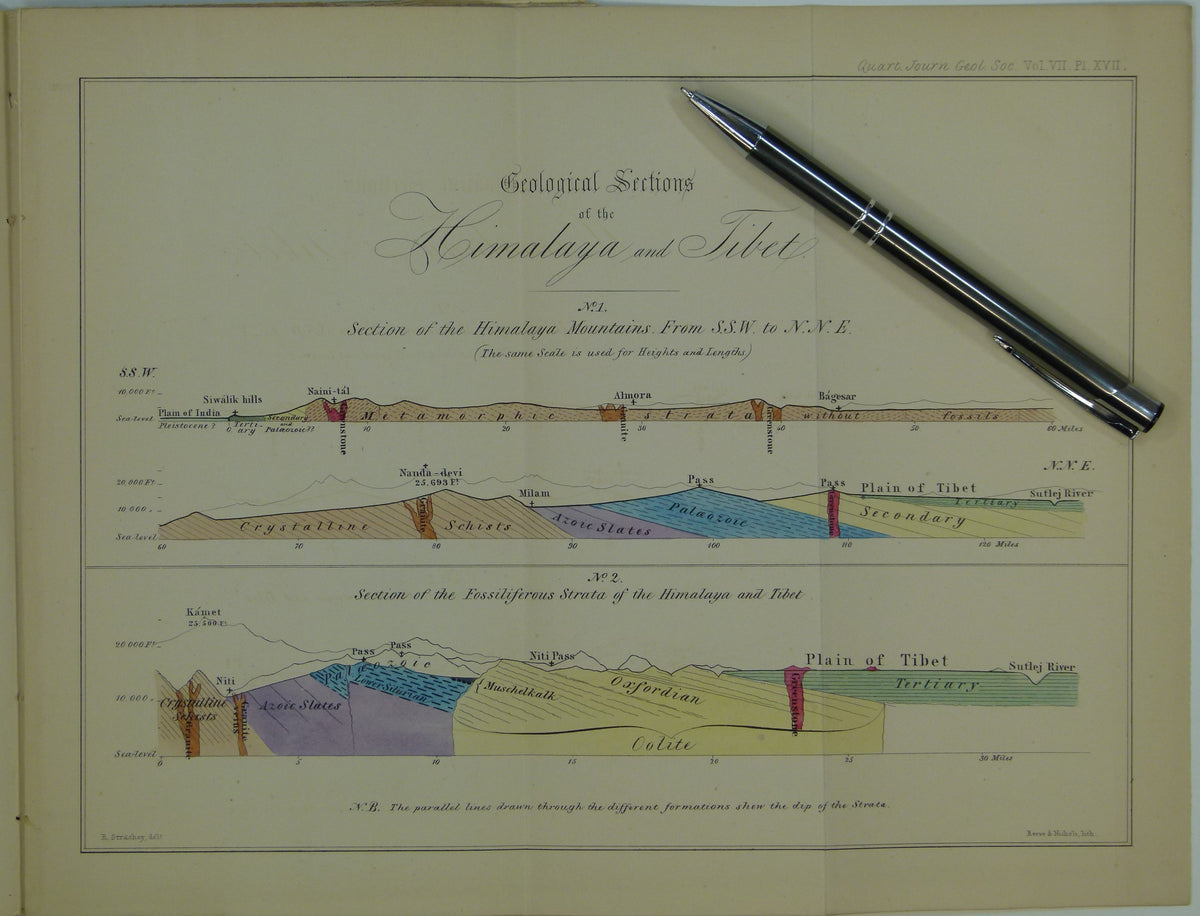 Quart. Journ. Geol. Soc. Vol. VII. Pl. XVII.
Geological Sections
of the
Himalaya and Tibet.
No. 1.
Section of the Himalaya Mountains. From S.S.W. to N.N.E.
(The same Scale is used for Heights and Lengths)
S.S.W.
10,000 Ft.
Siwálik hills
Naini-tál
Almora
Bágesar
Plain of India
Sea-level
Pleistocene?
Terti-
ary
Secondary
and
Palæozoic??
Greenstone
Metamorphic strata without fossils
Granite
Greenstone
10 20 30 40 50 60 Miles
N.N.E.
20,000 Ft.
10,000
Sea-level
Nanda-devi
25,693 Ft.
Milam
Pass
Pass
Plain of Tibet
Sutlej River
Crystalline
Granite
Schists
Azoic Slates
Palæozoic
Greenstone
Secondary
Tertiary
60 70 80 90 100 110 120 Miles
No. 2.
Section of the Fossiliferous Strata of the Himalaya and Tibet
Kámet
25,500 Ft.
20 000 Ft.
10,000
Sea-level
Niti
Pass
Pass
Niti Pass
Plain of Tibet
Sutlej River
Crystalline
Schists
Granite
Granite
Veins
Azoic Slates
Palæozoic
Lower Silurian
Muschelkalk
Oxfordian
Oolite
Greenstone
Tertiary
0 5 10 15 20 25 30 Miles
N.B. The parallel lines drawn through the different formations shew the dip of the Strata.
R. Strachey, delt.
Reeve & Nichols, lith.